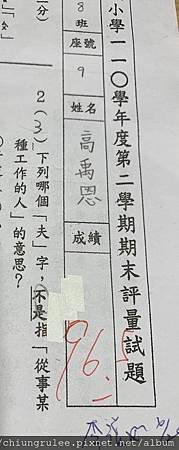 小學一一〇學年度第二學期期末評量試題
8班
座號
9
姓名
高禹恩
成績
96.5
2(3)下列哪個「夫」字，不是指「從事某
種工作的人」的意思？
chiungrulee.pixnet.net/album